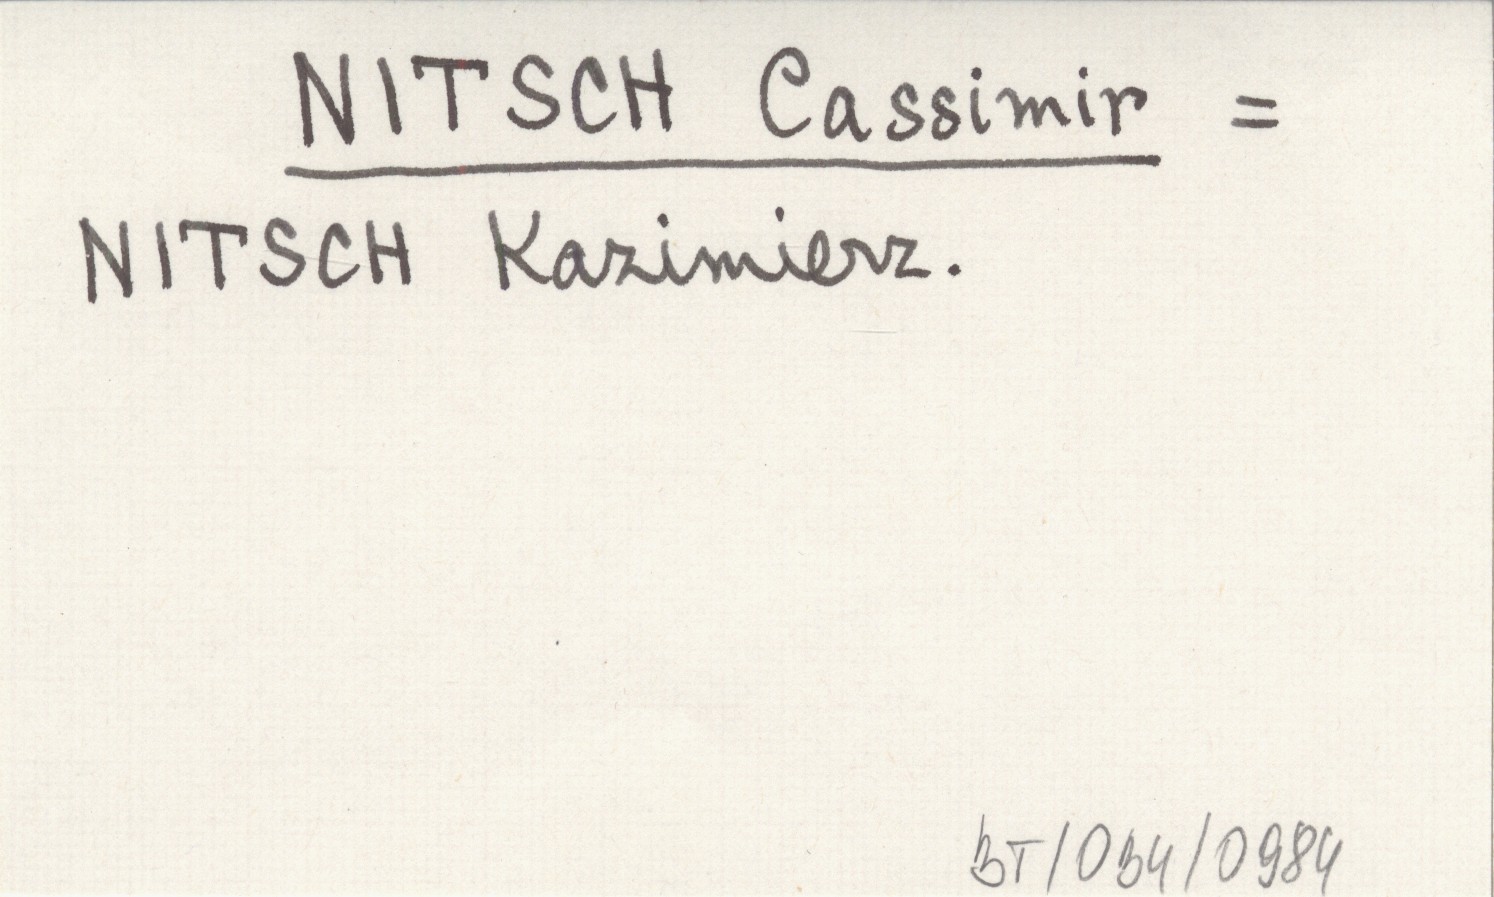 NITSCH Cassimir =
NITSCH Kazimierz.
BT/034/0984